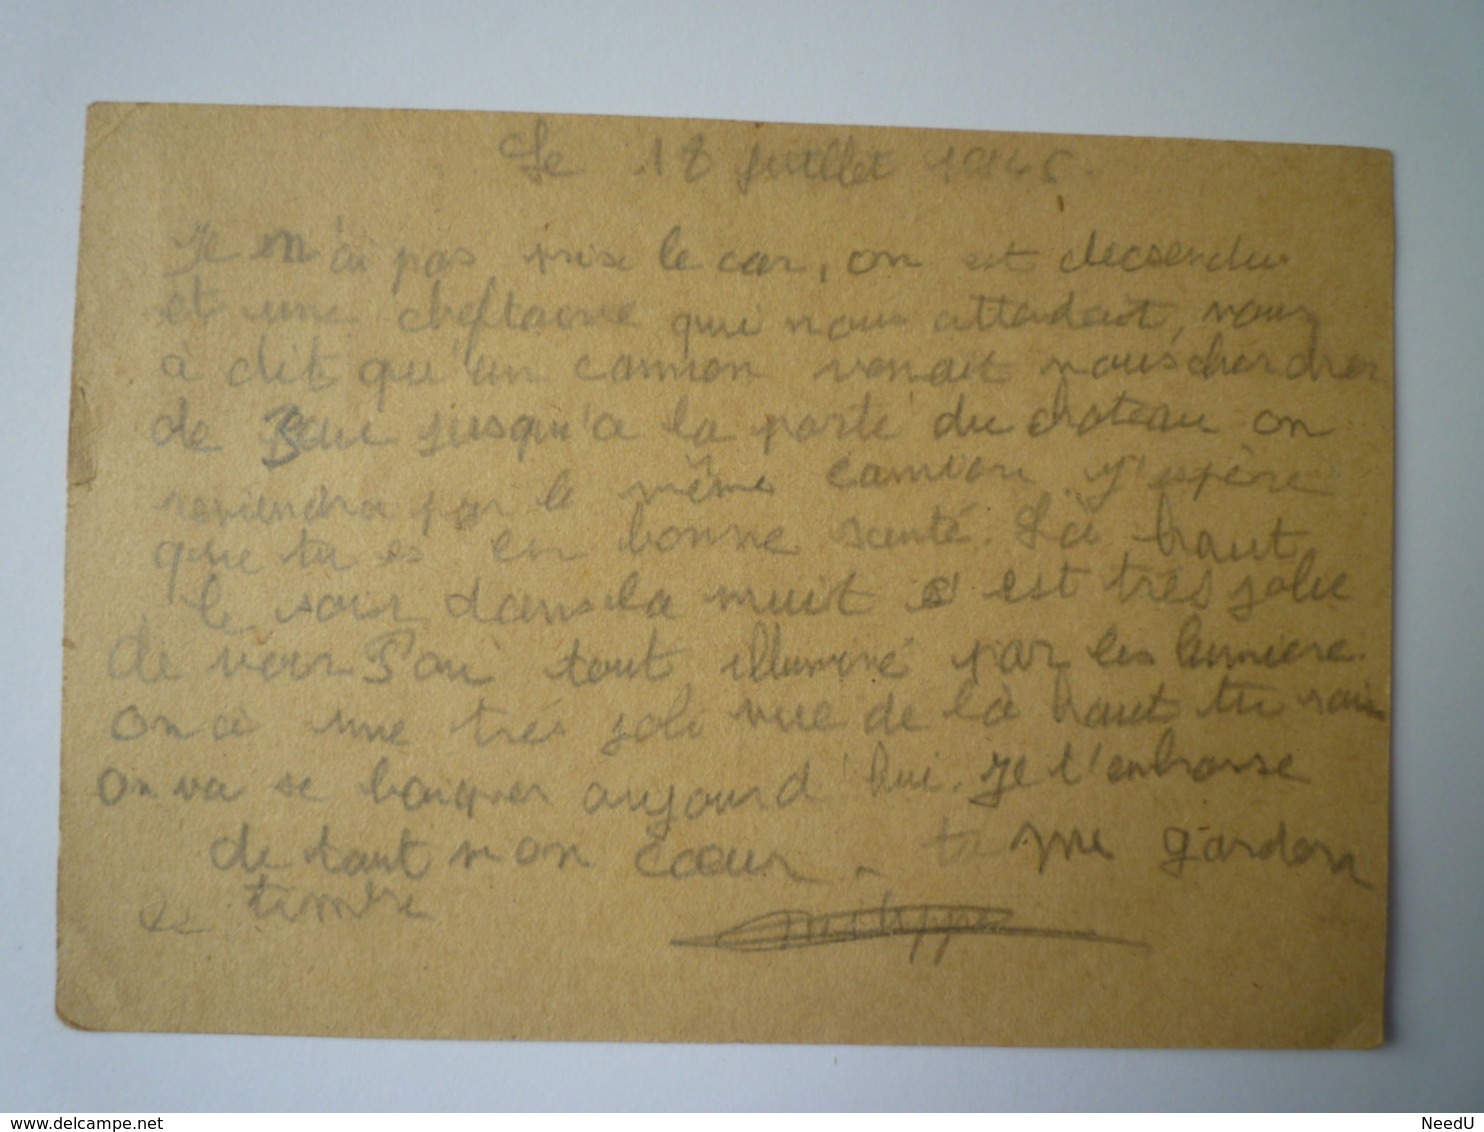 Le 18 juillet 1945.
Je n'ai pas pris le car, on est decsendu
et une cheftaine qui nous attendait, nous
à dit qu'un camion venait nous cherdrer
de Pau jusqu'a la porte du chateau on
reviendra par le même camion. J'espère
que tu es en bonne santé. Là haut
le soir dans la nuit c'est très jolie
de voir Pau tout illuminé par les lumiere.
on à une très joli vue de là haut tu sais
on va se baigner aujourd'hui. Je t'enbrasse
de tout mon cœur. tu me gardera
le timbre
Philippe
www.delcampe.net
NeedU